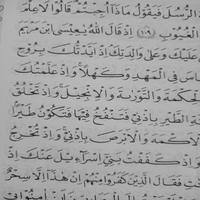 الرُّسُلَ فَيَقُولُ مَاذَآ أُجِبْتُمْ قَالُوا۟ لَا عِلْمَ
الْغُيُوبِ ﴿١٠٩﴾ إِذْ قَالَ اللَّهُ يَٰعِيسَى ابْنَ مَرْيَمَ
عَلَيْكَ وَعَلَىٰ وَالِدَتِكَ إِذْ أَيَّدتُّكَ بِرُوحِ
النَّاسَ فِى الْمَهْدِ وَكَهْلًا وَإِذْ عَلَّمْتُكَ
الْحِكْمَةَ وَالتَّوْرَىٰةَ وَالْإِنجِيلَ وَإِذْ تَخْلُقُ
الطَّيْرِ بِإِذْنِى فَتَنفُخُ فِيهَا فَتَكُونُ طَيْرًا
الْأَكْمَهَ وَالْأَبْرَصَ بِإِذْنِى وَإِذْ تُخْرِجُ
وَإِذْ كَفَفْتُ بَنِىٓ إِسْرَٰٓءِيلَ عَنكَ إِذْ
فَقَالَ الَّذِينَ كَفَرُوا۟ مِنْهُمْ إِنْ هَٰذَآ إِلَّا سِحْرٌ